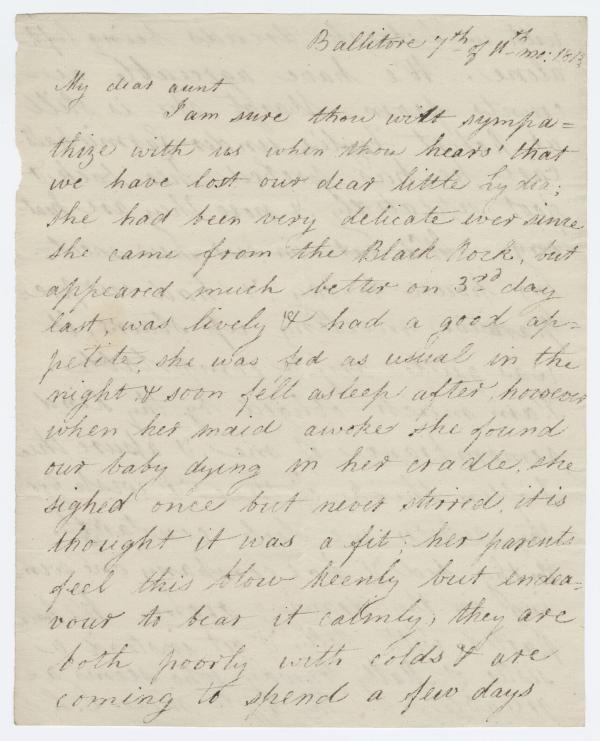 Ballitore 7th of 11th mo: 1813
My dear aunt
I am sure thou wilt sympa=
thize with us when thou hears that
we have lost our dear little Lydia;
she had been very delicate ever since
she came from the Black Rock, but
appeared much better on 3rd day
last, was lively & had a good ap=
petite, she was fed as usual in the
night & soon fell asleep after, however
when her maid awoke she found
our baby dying in her cradle, she
sighed once but never stirred, it is
thought it was a fit; her parents
feel this blow keenly but endea=
vour to bear it calmly, they are
both poorly with colds & are
coming to spend a few days